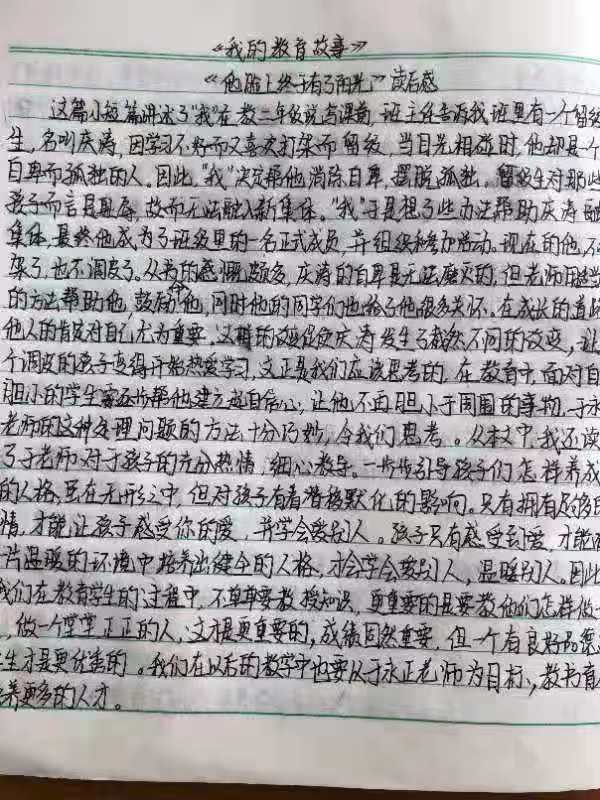 《我的教育故事》
《他脸上终于有了阳光》读后感
这篇小短篇讲述了"我"在教二年级说与课前,班主任告诉我班里有一个留级
生,名叫庆涛,因学习不好而又喜欢打架而留级,当目光相碰时,他却是个
自卑而孤独的人。因此,"我"决定帮他消除自卑,摆脱孤独。留级生对那些
孩子而言是耻辱,故而无法融入新集体。"我"于是想了些办法帮助庆涛融
集体,最终他成为了班级里的一名正式成员,并组织参加活动。现在的他,不
架了,也不调皮了。从书的感慨颇多,庆涛的自卑是无法磨灭的,但老师用适当
的方法帮助他,鼓励他,同时他的同学们也给了他很多关怀。在成长的道路
他人的肯定对自己尤为重要,这样的改变促使庆涛发生了截然不同的改变,让
个调皮的孩子变得开始热爱学习,这正是我们应该思考的。在教育中,面对自
胆小的学生需要你帮他建立起自信心,让他不再胆小于周围的事物,于永
老师的这种处理问题的方法十分巧妙,令我们思考。从本文中,我还读
了于老师对于孩子的充分热情,细心教导。一步步引导孩子们怎样养成
的人格,虽在无形之中,但对孩子有着潜移默化的影响。只有拥有足够的
情,才能让孩子感受你的爱,并学会爱别人。孩子只有感受到爱,才能在
片温暖的环境中培养出健全的人格,才会学会爱别人,温暖别人。因此
我们在教育学生的过程中,不单单要教授知识,更重要的是要教他们怎样做
,做一个堂堂正正的人,这才是更重要的,成绩固然重要,但一个有良好品德
生才是更优秀的。我们在以后的教学中也要以于永正老师为目标,教书育
养更多的人才。